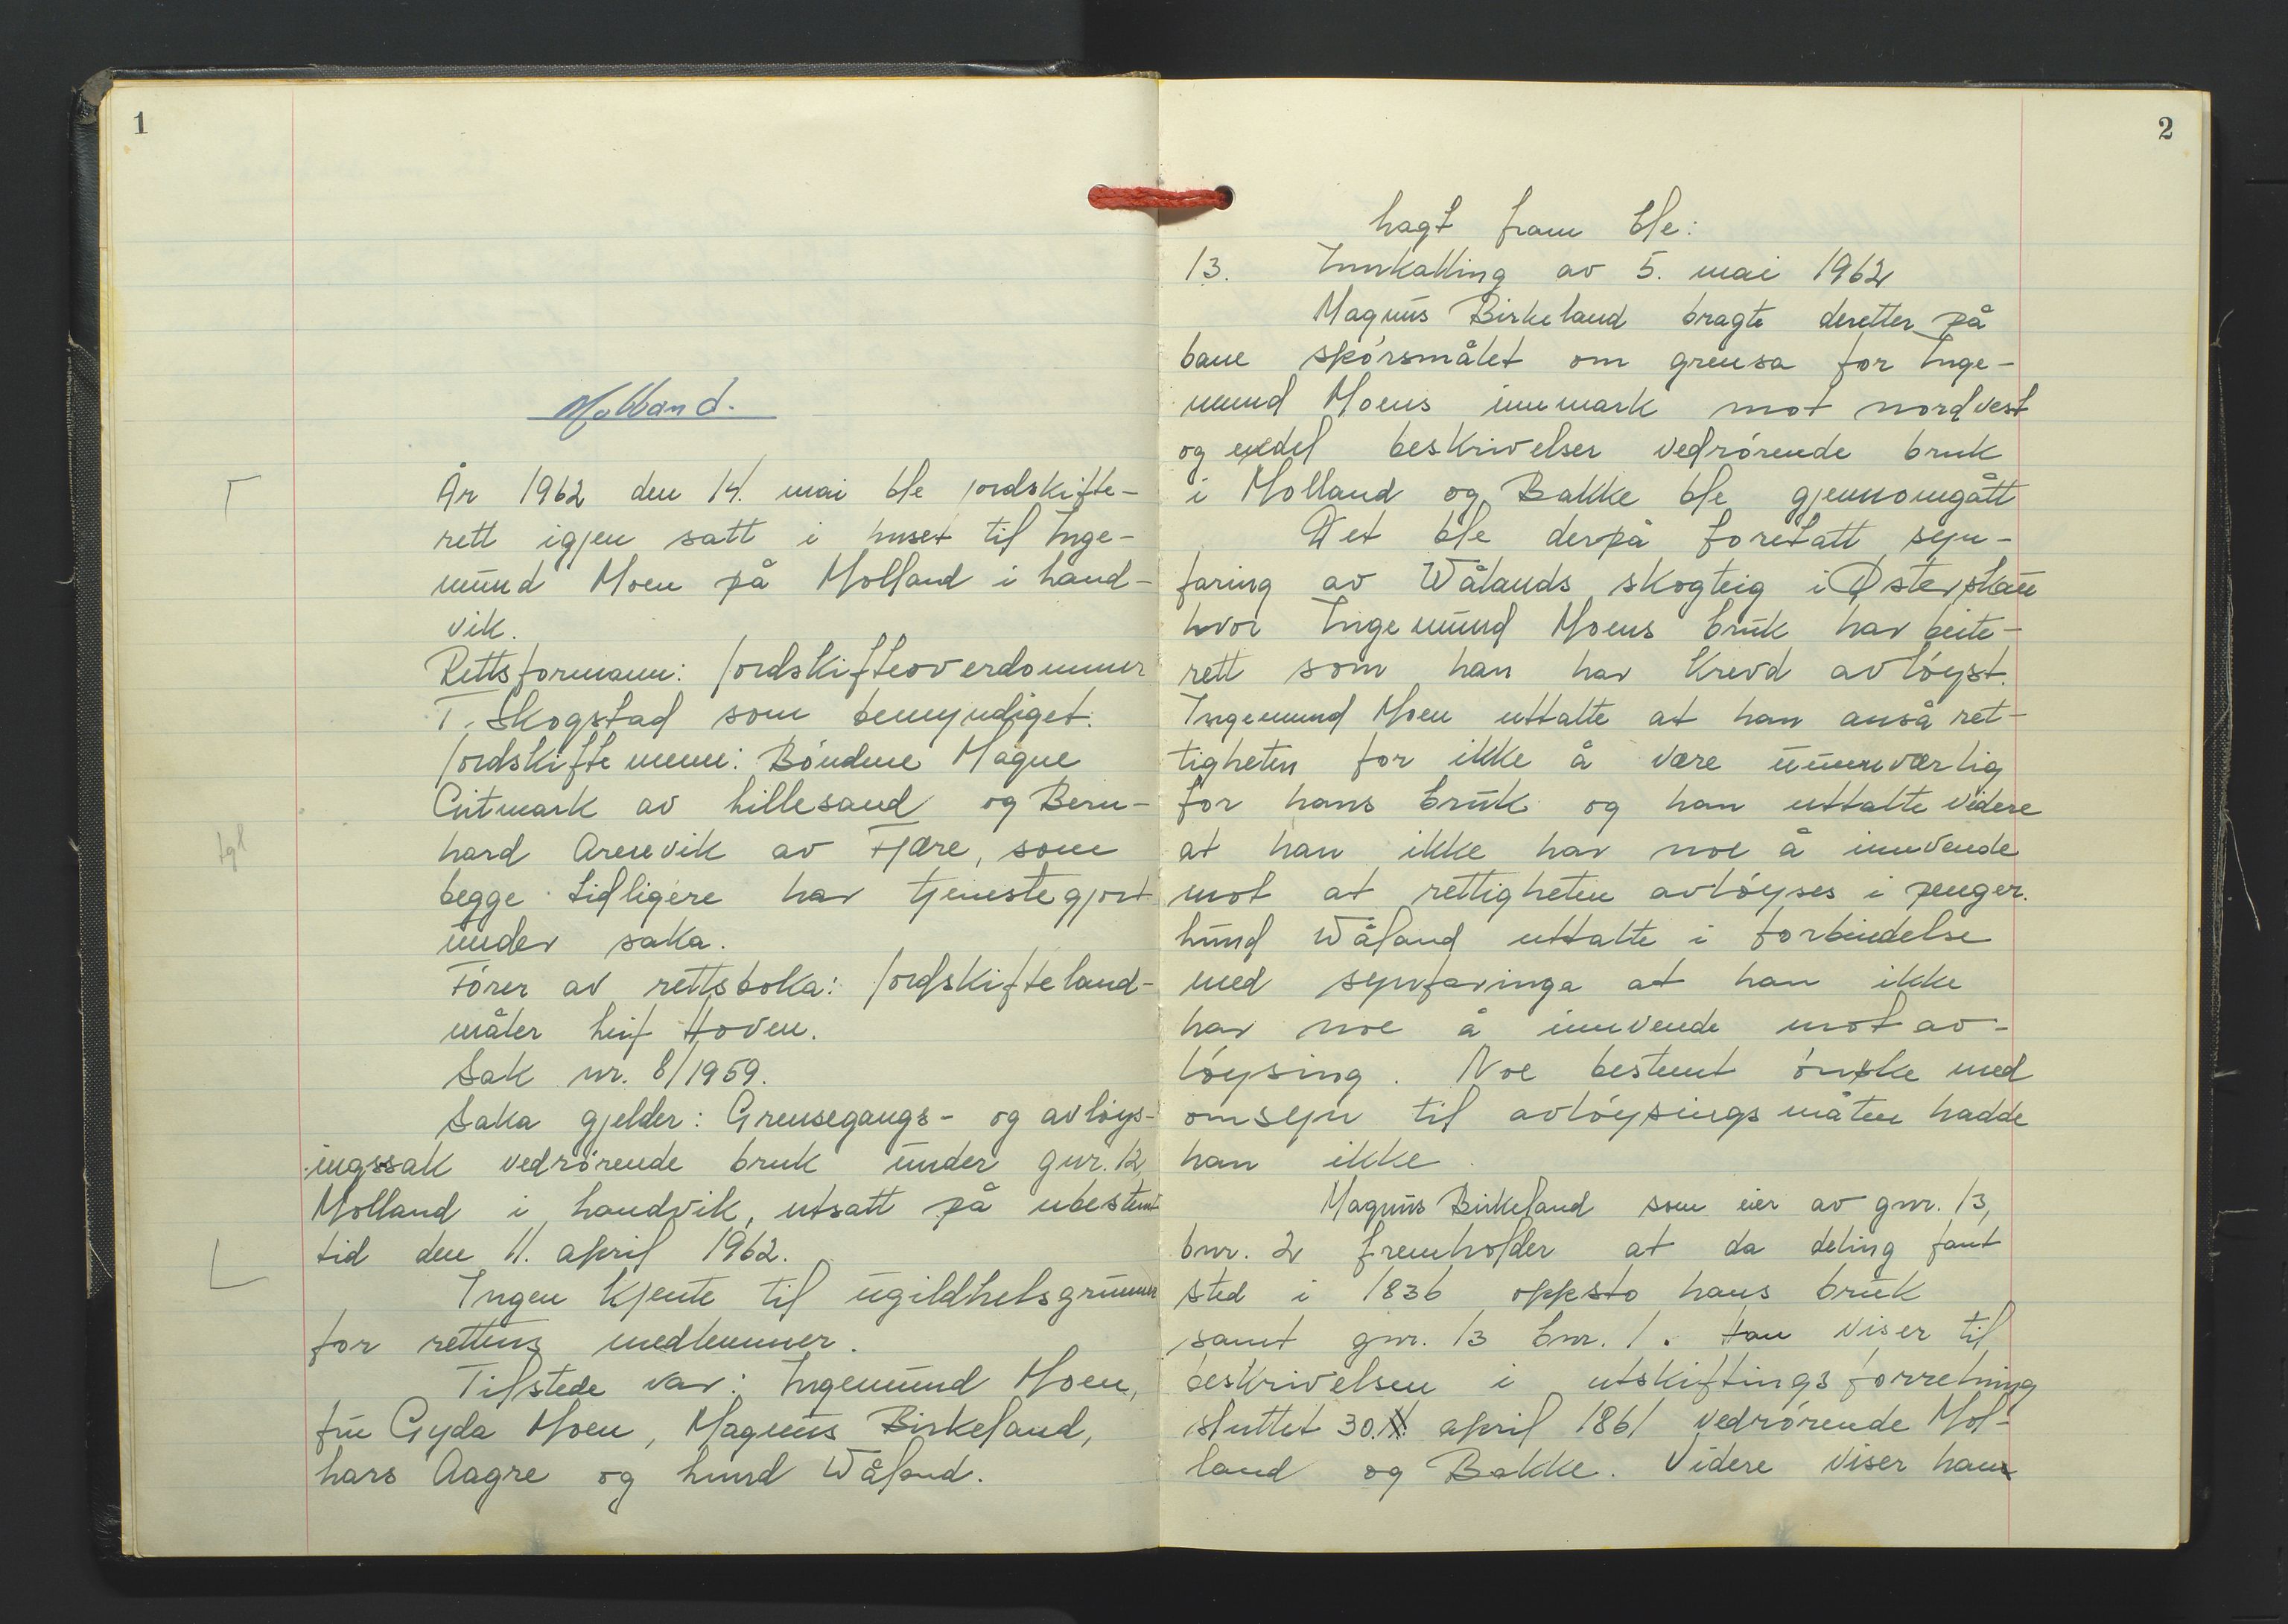 1
Molland.
År 1962 den 14. mai ble jordskifte-
rett igjen satt i huset til Inge-
mund Moen på Molland i Land-
vik.
Rettsformann: Jordskifteoverdommer
T. Skogstad som bemyndiget.
Jordskiftemenn: Bóndene Magne
av Lillesand og Bern-
hard Arenvik av Fjære, som
begge tidligere har tjenestegjort
under saka.
Fórer av rettsboka: Jordskifteland-
måler Leif Hoven.
Sak nr. 8/1959.
Saka gjelder: Grensegangs- og avlóys-
ingssak vedrórende bruk under gnr. 12,
Molland i Landvik, utsatt på ubestemt
tid den 11. april 1962.
Ingen kjente til ugildhetsgrunner
for rettens medlemmer.
Tilstede var: Ingemund Moen,
fru Gyda Moen, Magnus Birkeland,
Lars Aagre og Lund Wåland.
tgl
2
Lagt fram ble:
13. Innkalling av 5. mai 1962
Magnus Birkeland bragte deretter på
bane spórsmålet om grensa for Inge-
mund Moens innmark mot nordvest
og endel beskrivelser vedrórende bruk
i Molland og Bakke ble gjennomgått
Det ble derpå foretatt syn-
faring av Wålands skogteig i Østerskau
hvor Ingemund Moens bruk har beite-
rett som han har krevd avlóyst.
Ingemund Moen uttalte at han anså ret-
tigheten for ikke å være unnværlig
for hans bruk og han uttalte videre
at han ikke har noe å innvende
mot at rettigheten avlóyses i penger.
Lund Wåland uttalte i forbindelse
med synfaringa at han ikke
har noe å innvende mot av-
lóysing. Noe bestemt ónske med
omsyn til avlóysingsmåten hadde
han ikke.
Magnus Birkeland som eier av gnr. 13,
bnr. 2 fremholder at da deling fant
sted i 1836 oppsto hans bruk
samt gnr. 13 bnr. 1. Han viser til
beskrivelsen i utskiftingsforretning
sluttet 30. april 1861 vedrórende Mol-
land og Bakke. Videre viser han